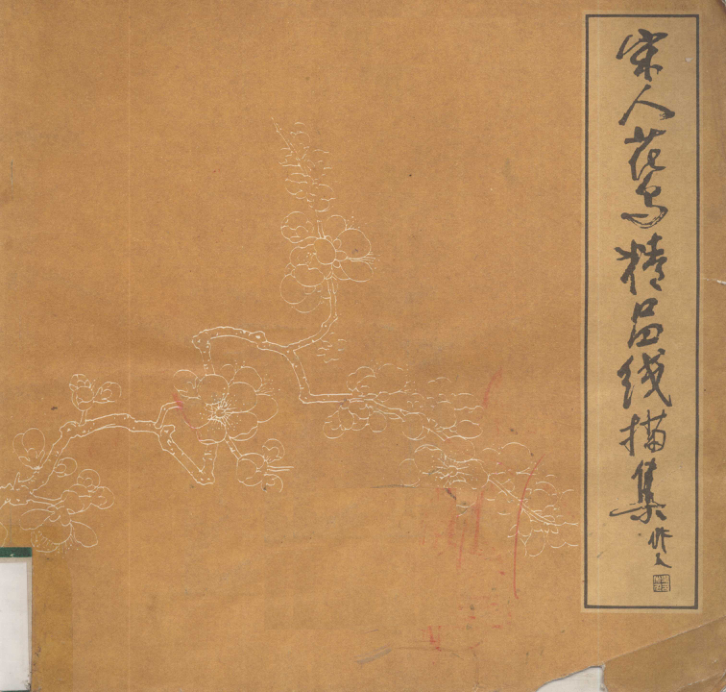 宋人花鸟精品线描集
作人